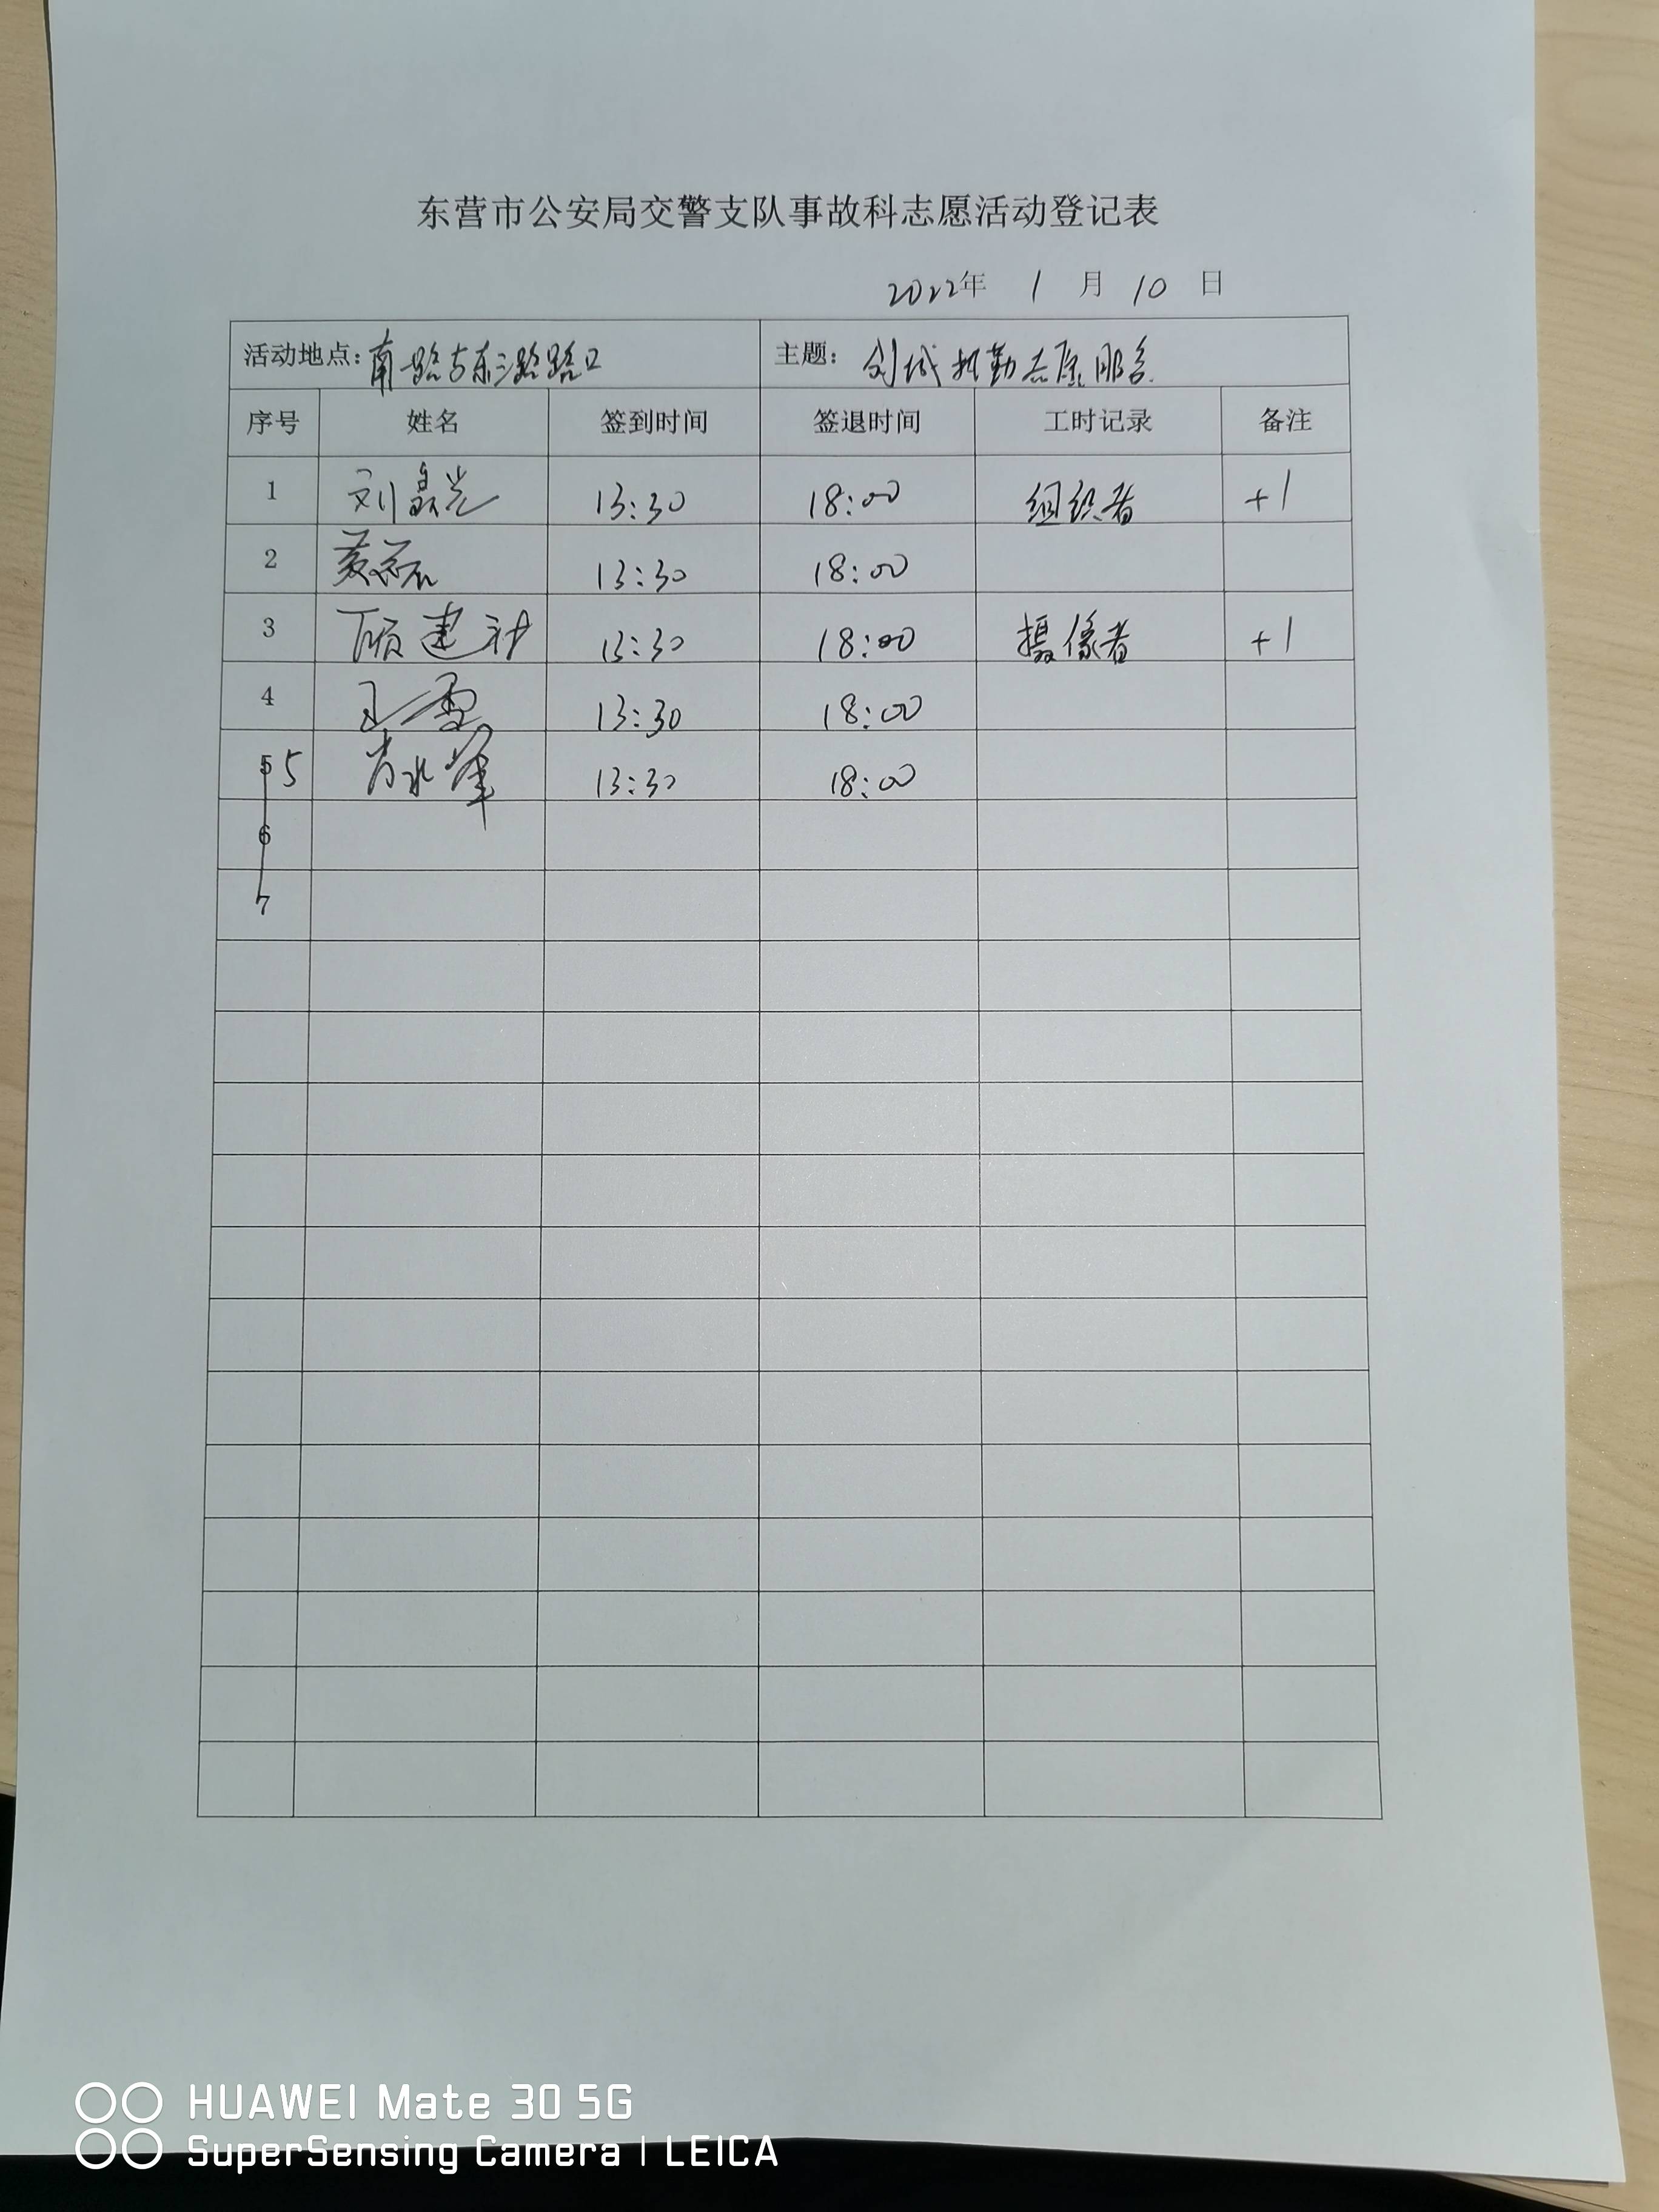 东营市公安局交警支队事故科志愿活动登记表
2022年 1 月 10 日
活动地点:南一路与东三路路口 主题: 创城执勤志愿服务
序号 姓名 签到时间 签退时间 工时记录 备注
1 刘 光 13:30 18:00 组织者 +1
2 13:30 18:00
3 顾建 13:30 18:00 摄像者 +1
4 王雪 13:30 18:00
5 5 肖 峰 13:30 18:00
6
7
HUAWEI Mate 30 5G
SuperSensing Camera | LEICA